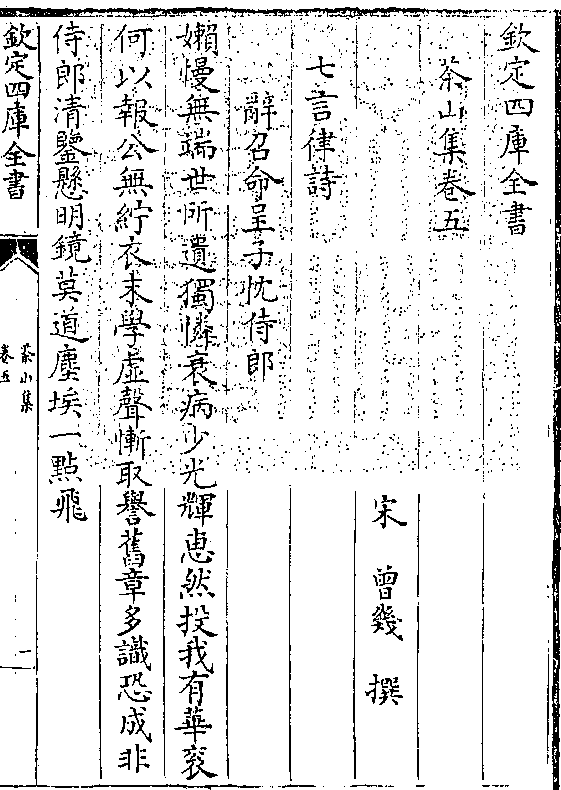 欽定四庫全書
茶山集卷五
宋 曾幾 撰
七言律詩
辭召命呈子忱侍郎
嬾慢無端世所遺獨憐衰病少光輝惠然投我有華衮
何以報公無紵衣末學虛聲慚取譽舊章多識恐成非
侍郎清鑒懸明鏡莫道塵埃一點飛
欽定四庫全書
茶山集
卷五
一